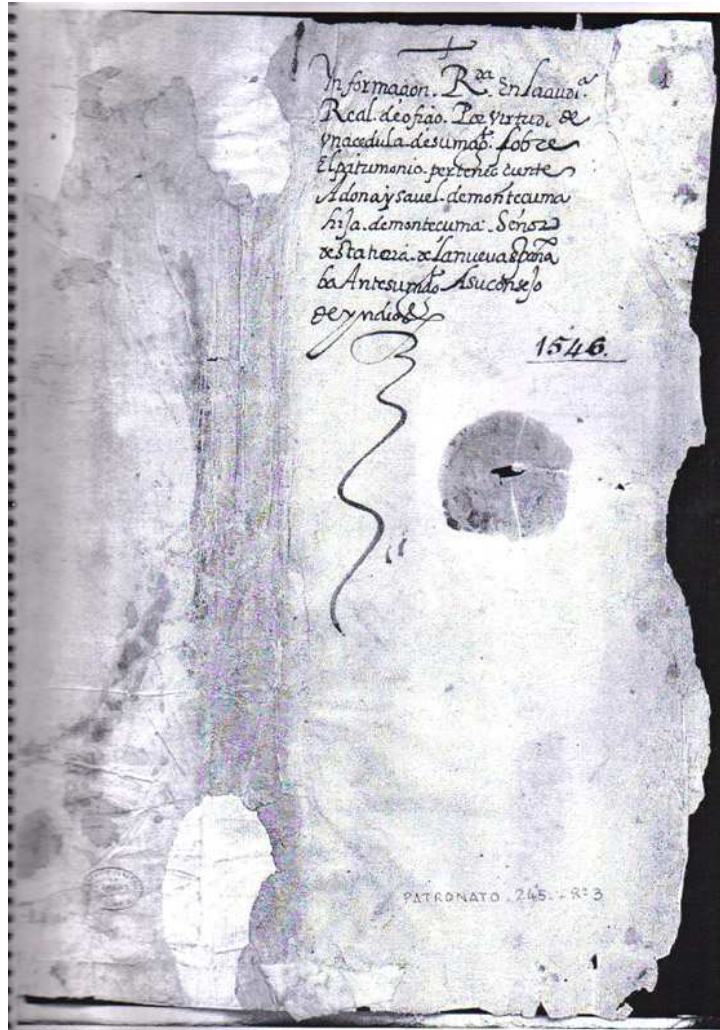 1
Informaçion. Rda. En laaudia.
Real. de ofiçio. Por virtud. de
Vna cedula. de su magt. sobre
El patrimonio. perteneçiente
A doña ysauel. de monteçuma
hija. de monteçuma. Señor
destatierra. de la nueua españa
ba Ante su magt. A su consejo
de yndias
1546.
PATRONATO. 245. - Rº 3